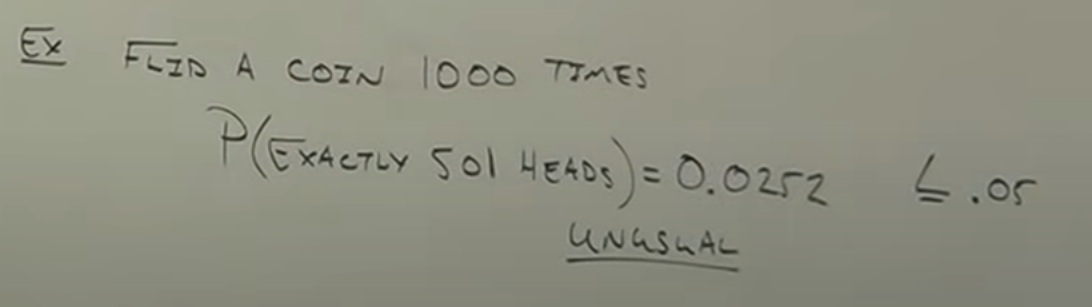 Ex FLIP A COIN 1000 TIMES
P(EXACTLY 501 HEADS) = 0.0252 ≤ .05
UNUSUAL